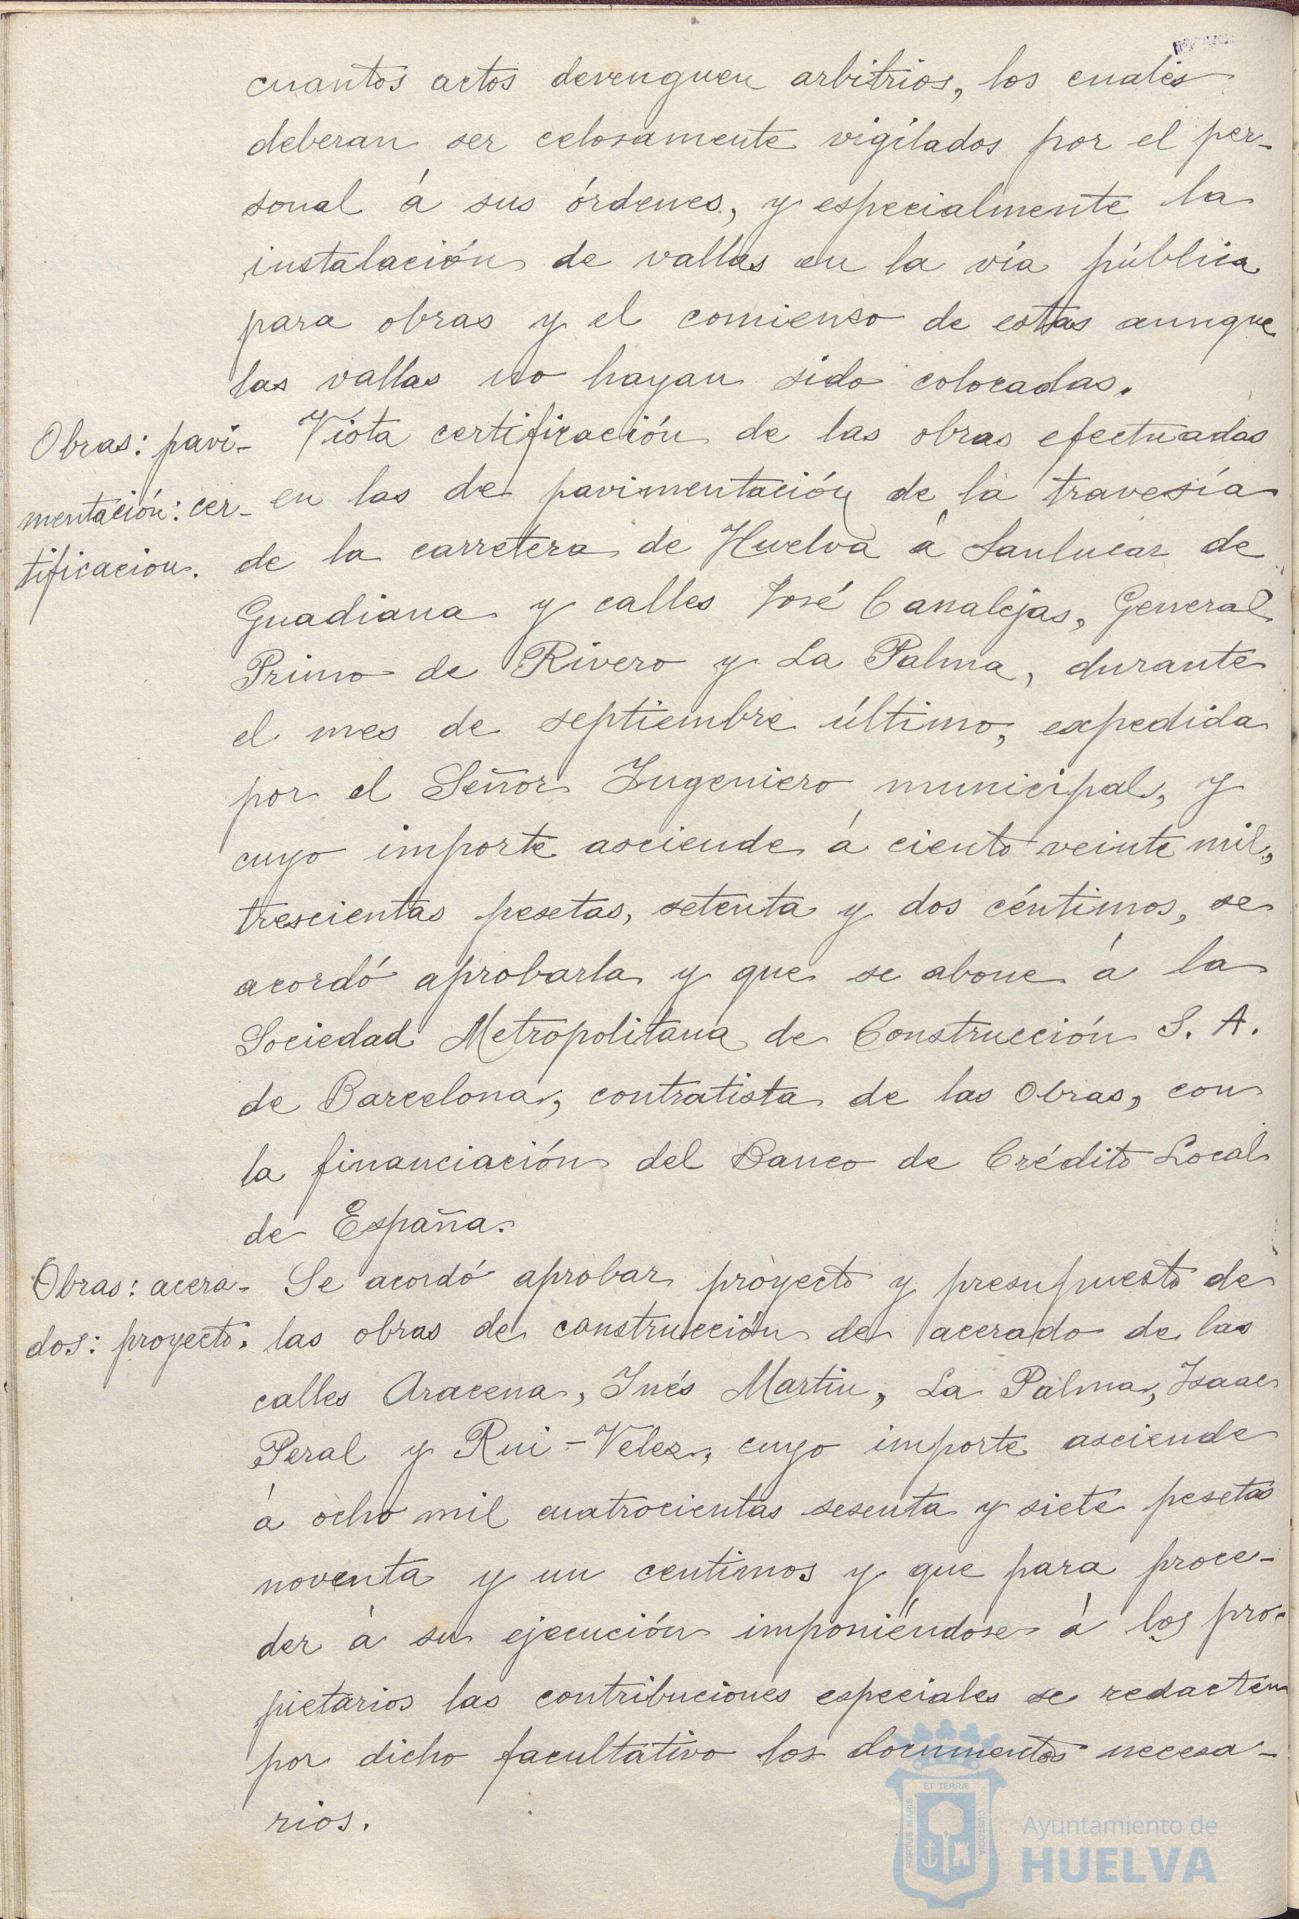 cuantos actos devenguen arbitrios, los cuales
deberan ser celosamente vigilados por el per-
sonal á sus órdenes, y especialmente la
instalación de vallas en la vía pública
para obras y el comienzo de estas aunque
las vallas no hayan sido colocadas.
Obras: pavi-
mentación: cer-
tificacion.
Vista certificación de las obras efectuadas
en las de pavimentación de la travesía
de la carretera de Huelva á Sanlucar de
Guadiana y calles José Canalejas, General
Primo de Rivero y La Palma, durante
el mes de septiembre último, expedida
por el Señor Ingeniero municipal, y
cuyo importe asciende á ciento veinte mil,
trescientas pesetas, setenta y dos céntimos, se
acordó aprobarla y que se abone á la
Sociedad Metropolitana de Construcción S. A.
de Barcelona, contratista de las obras, con
la financiación del Banco de Crédito Local
de España.
Obras: acera-
dos: proyecto.
Se acordó aprobar proyecto y presupuesto de
las obras de construcción de acerado de las
calles Aracena, Inés Martin, La Palma, Isaac
Peral y Rui-Velez, cuyo importe asciende
á ocho mil cuatrocientas sesenta y siete pesetas
noventa y un centimos y que para proce-
der á su ejecución imponiéndose á los pro-
pietarios las contribuciones especiales se redacten
por dicho facultativo los documentos necesa-
rios.
ET TERRÆ
PORTUS MARIS
CUSTODIA
Ayuntamiento de
HUELVA